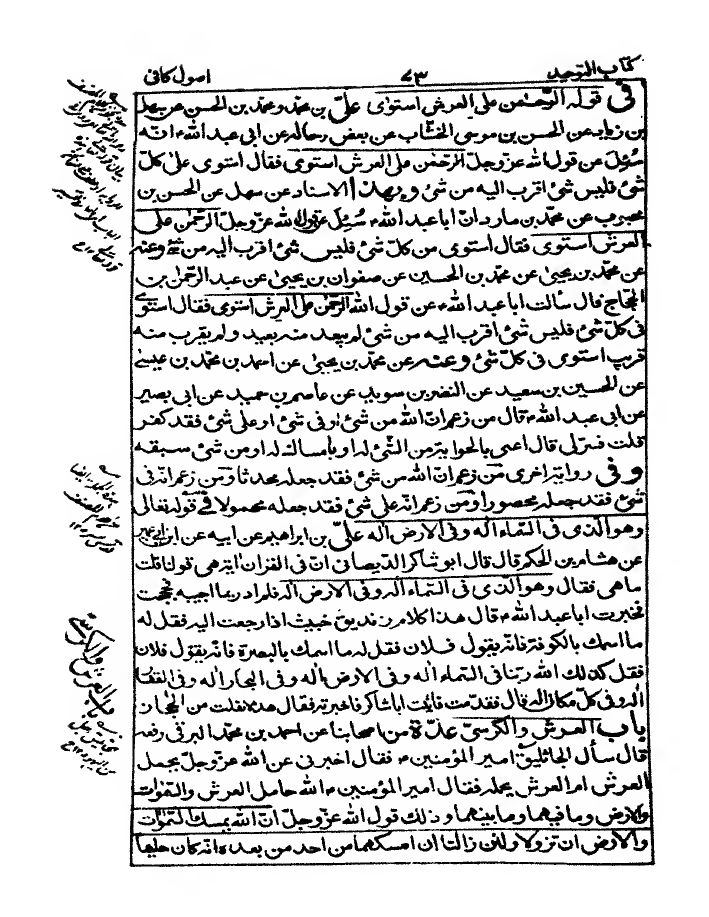 كتاب التوحيد ٧٣ اصول كافى
فى قوله الرّحمٰن على العرش استوى علىّ بن محمّد ومحمّد بن الحسن عن سهل
بن زياد عن الحسن بن موسى الخشّاب عن بعض رجاله عن ابى عبد الله ء انّه
سُئِلَ عن قول الله عزّ وجلّ الرحمٰن على العرش استوى فقال استوى على كلّ
شئ فليس شئ اقرب اليه من شئ وبهذا الاسناد عن سهل عن الحسن بن
محبوب عن محمّد بن مارد انّ ابا عبد الله ء سُئِلَ عن قول الله عزّ وجلّ الرّحمٰن على
العرش استوى فقال استوى من كلّ شئ فليس شئ اقرب اليه من شئ وعنه
عن محمّد بن يحيى عن محمّد بن الحسين عن صفوان بن يحيى عن عبد الرّحمٰن بن
الحجّاج قال سألت ابا عبد الله ء عن قول الله الرّحمٰن على العرش استوى فقال استوى
فى كلّ شئ فليس شئ اقرب اليه من شئ لم يبعد منه بعيد ولم يقرب منه
قريب استوى فى كلّ شئ وعنه عن محمّد بن يحيى عن احمد بن محمّد بن عيسى
عن الحسين بن سعيد عن النضر بن سويد عن عاصم بن حميد عن ابى بصير
عن ابى عبد الله ء قال من زعم انّ الله من شئ او فى شئ او على شئ فقد كفر
قلت فسّر لى قال اعنى بالحواية من الشّئ له او بامساك له او من شئ سبقه
وفى رواية اخرى من زعم انّ الله من شئ فقد جعله محدثا ومن زعم انّه فى
شئ فقد جعله محصورا ومن زعم انّه على شئ فقد جعله محمولا فى قوله تعالى
وهو الّذى فى السّماء اله وفى الارض اله علىّ بن ابراهيم عن ابيه عن ابن ابى عمير
عن هشام بن الحكم قال قال ابو شاكر الديصانى انّ فى القران اية هى قولنا قلت
ما هى فقال وهو الّذى فى السّماء اله وفى الارض اله فلم ادر بما اجيبه فحججت
فخبرت ابا عبد الله ء قال هذا كلام زنديق خبيث اذا رجعت اليه فقل له
ما اسمك بالكوفة فانّه يقول فلان فقل له ما اسمك بالبصرة فانّه يقول فلان
فقل كذلك الله ربّنا فى السّماء اله وفى الارض اله وفى البحار اله وفى القفار
اله وفى كلّ مكان اله قال فقدمت فاتيت ابا شاكر فاخبرته فقال هذه نقلت من الحجاز
باب العرش والكرسىّ عدّة من اصحابنا عن احمد بن محمّد البرقى رفعه
قال سأل الجاثليق امير المؤمنين ء فقال اخبرنى عن الله عزّ وجلّ يحمل
العرش ام العرش يحمله فقال امير المؤمنين ء الله حامل العرش والسّمٰوات
والارض وما فيهما وما بينهما وذلك قول الله عزّ وجلّ انّ الله يمسك السّمٰوات
والارض ان تزولا ولئن زالتا ان امسكهما من احد من بعده انّه كان حليما
باب العرش والكرسى